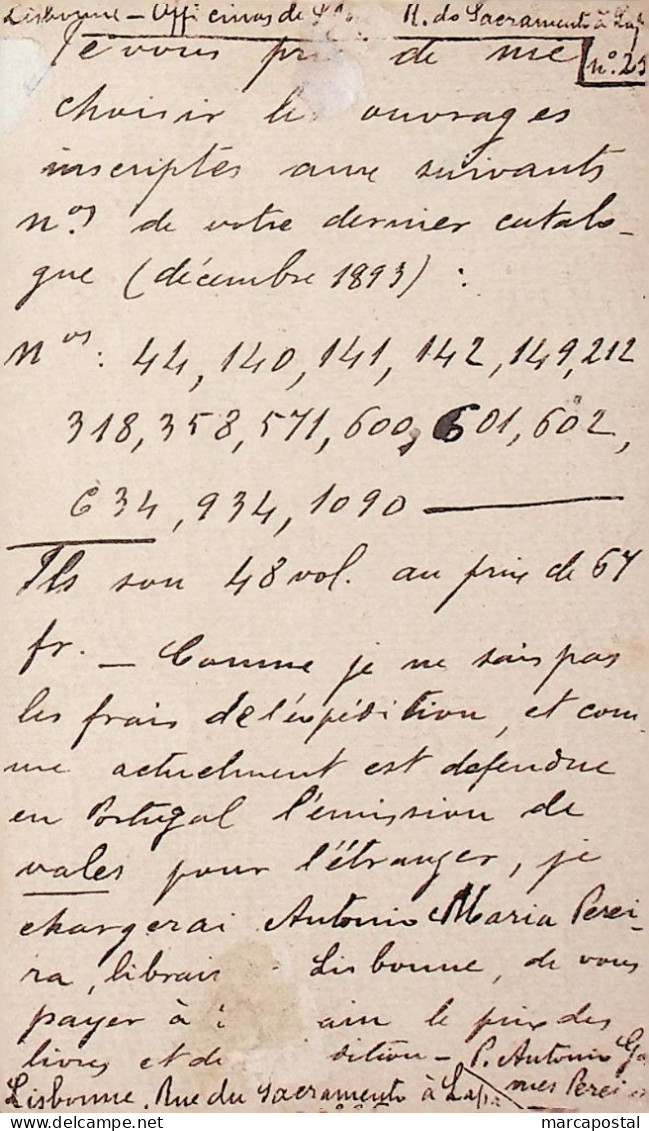 Lisbonne - Officinas de R. do Sacramento à Lapa
nº. 25
Je vous prie de me
choisir les ouvrages
inscriptés aux suivants
n.os de votre dernier catalo-
gue (décembre 1893) :
Nos: 44, 140, 141, 142, 149, 212
318, 358, 571, 600, 601, 602,
634, 934, 1090
Ils son 48 vol. au prix de 67
fr. - Comme je ne sais pas
les frais de l'éxpédition, et com-
me actuelment est defendue
en Portugal l'émission de
vales pour l'étranger, je
chargerai Antonio Maria Perei-
ra, librair Lisbonne, de vous
payer à ain le prix des
livres et de dition - P. Antonio Go
mes Perei
Lisbonne, Rue du Sacramento à Lapa